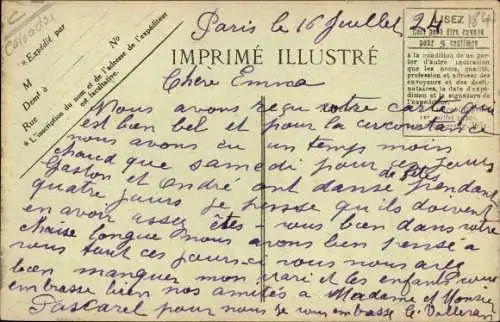 Calvados
Paris le 16 Juillet 24
* Expédié par
M
Demt à
Rue
N°
* L'inscription du nom et de l'adresse de l'expéditeur
est facultative.
IMPRIMÉ ILLUSTRÉ
LISEZ
Ceci peut être envoyé
pour 5 centimes
à la condition de ne porter d'autre inscription
que les nom, qualité,
profession et adresse des
envoyeurs et des destinataires, la date d'expédition et la signature de
l'expéditeur.
Chère Emma
Nous avons reçu votre carte qui
est bien bel et pour la circonstance
nous avons eu un temps moin
chaud que samedi pour ces jours
de fêtes
Gaston et André ont danse pendant
quatre jours je pense qu'ils doivent
en avoir assez êtes-vous bien dans votre
chaise longue nous avons bien pensé a
vous tout ces jours-ci vous nous avez
bien manquer mon mari et les enfants vous
embrasse bien nos amitiés a Madame et Monsieur
Pascarel pour nous je vous embrasse